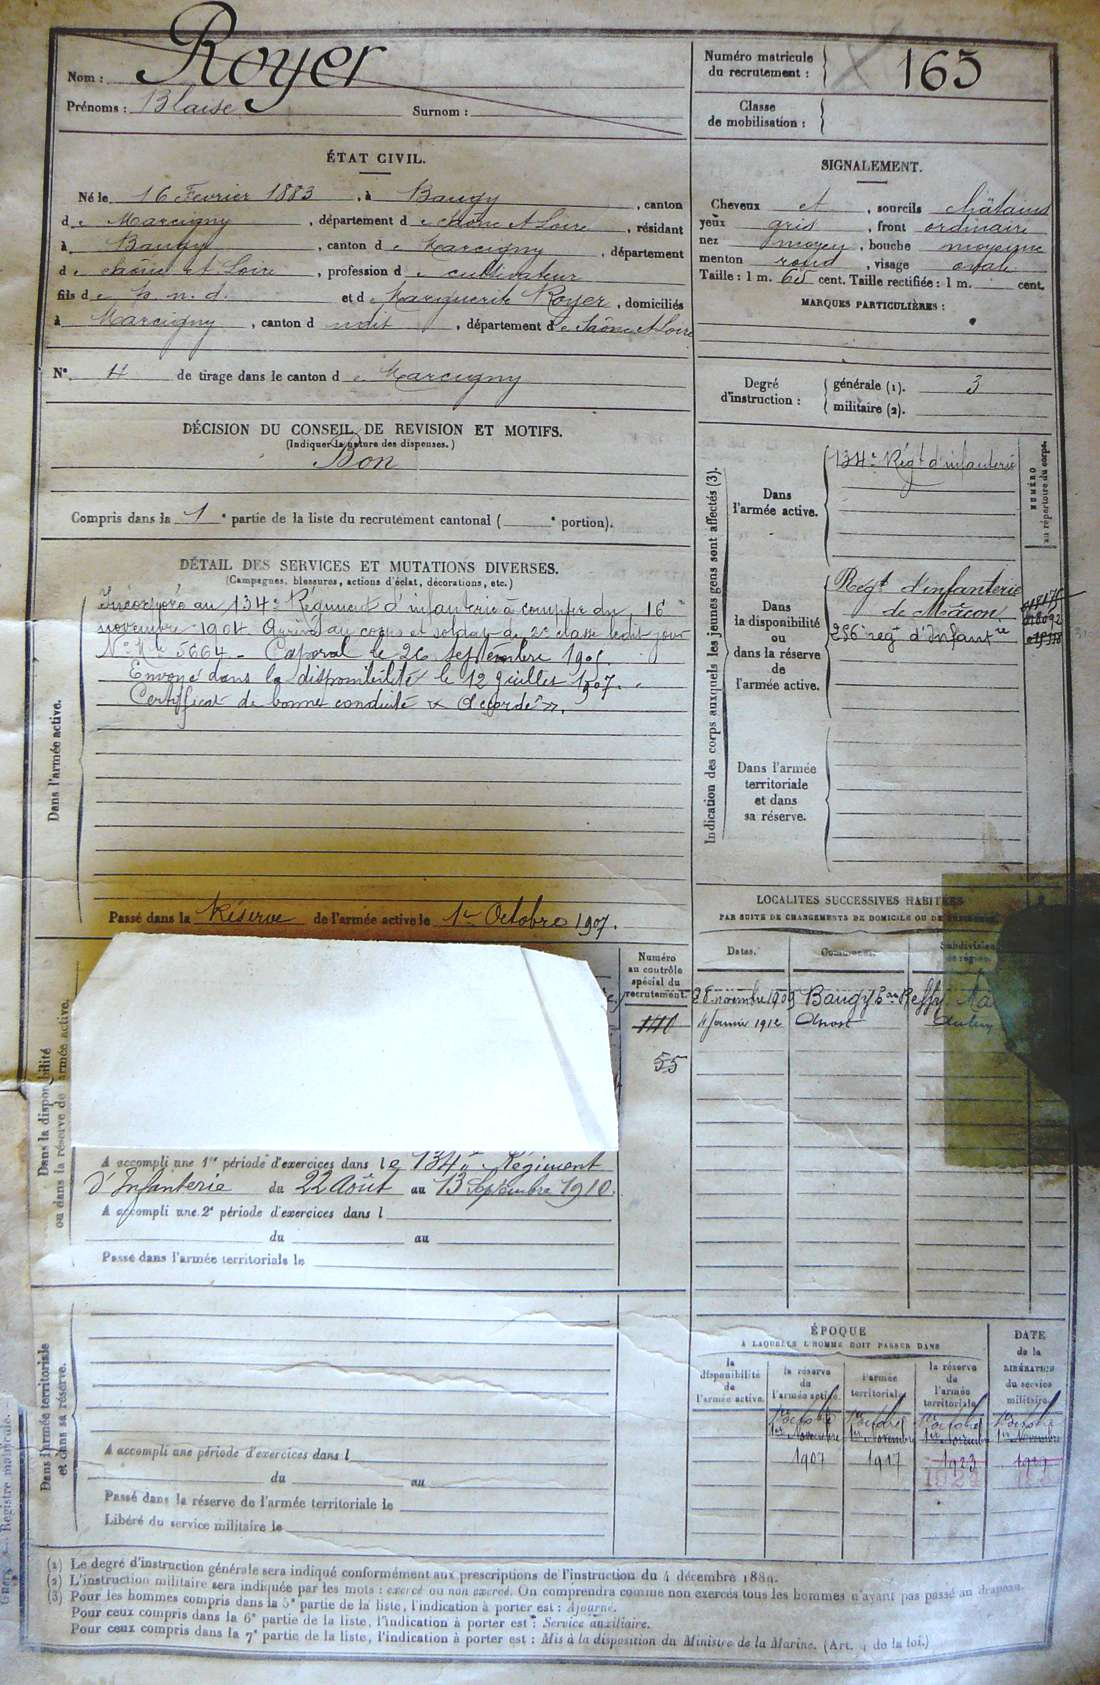 Nom : Royer
Prénoms : Blaise Surnom :
Numéro matricule du recrutement : 165
Classe de mobilisation :
ÉTAT CIVIL.
Né le 16 Fevrier 1883, à Baugy, canton
de Marcigny, département de Saône et Loire, résidant
à Baugy, canton de Marcigny, département
de Saône et Loire, profession de cultivateur
fils de p. n. d. et de Marguerite Royer, domiciliés
à Marcigny, canton d udit, département de Saône et Loire
N° 4 de tirage dans le canton de Marcigny
SIGNALEMENT.
Cheveux et, sourcils châtains
yeux gris, front ordinaire
nez moyen, bouche moyenne
menton rond, visage ovale
Taille : 1 m. 65 cent. Taille rectifiée : 1 m. cent.
MARQUES PARTICULIÈRES :
Degré d'instruction :
générale (1). 3
militaire (2).
DÉCISION DU CONSEIL DE REVISION ET MOTIFS.
(Indiquer la nature des dispenses.)
Bon
Compris dans la 1e partie de la liste du recrutement cantonal ( e portion).
DÉTAIL DES SERVICES ET MUTATIONS DIVERSES.
(Campagnes, blessures, actions d'éclat, décorations, etc.)
Dans l'armée active.
Incorporé au 134e Régiment d'infanterie à compter du 16
novembre 1904 Arrivé au corps et soldat de 2e classe ledit jour
N° Mle 5664 - Caporal le 26 septembre 1905
Envoyé dans la disponibilité le 12 Juillet 1907.
Certificat de bonne conduite « Accordé ».
Passé dans la Réserve de l'armée active le 1er Octobre 1907.
Indication des corps auxquels les jeunes gens sont affectés (3).
NUMÉRO au répertoire du corps.
Dans l'armée active.
134e Régt d'infanterie
Dans la disponibilité ou dans la réserve de l'armée active.
Régt d'infanterie
de Mâcon
256e régt d'Infantrie
Dans l'armée territoriale et dans sa réserve.
LOCALITÉS SUCCESSIVES HABITÉES
PAR SUITE DE CHANGEMENTS DE DOMICILE OU DE
Dates. Communes. Subdivision de région.
novembre 1909 Baugy
4 Janvier 1912 Anost
Dans la disponibilité ou dans la réserve de l'armée active.
Numéro au contrôle spécial du recrutement.
140
55
A accompli une 1re période d'exercices dans le 134e Régiment
d'Infanterie du 22 Août au 13 Septembre 1910.
A accompli une 2e période d'exercices dans l
du au
Passé dans l'armée territoriale le
Dans l'armée territoriale et dans sa réserve.
A accompli une période d'exercices dans l
du au
Passé dans la réserve de l'armée territoriale le
Libéré du service militaire le
ÉPOQUE
A LAQUELLE L'HOMME DOIT PASSER DANS
la disponibilité de l'armée active.
la réserve de l'armée active
l'armée territoriale
la réserve de l'armée territoriale
DATE de la LIBÉRATION du service militaire.
1er Octobre 1er Octobre 1er Octobre 1er Octobre
1er Novembre 1er Novembre 1er Novembre 1er Novembre
1907 1917 1923 1929
Registre matricule.
(1) Le degré d'instruction générale sera indiqué conformément aux prescriptions de l'instruction du 4 décembre 1889.
(2) L'instruction militaire sera indiquée par les mots : exercé ou non exercé. On comprendra comme non exercés tous les hommes n'ayant pas passé au drapeau.
(3) Pour les hommes compris dans la 5e partie de la liste, l'indication à porter est : Ajourné.
Pour ceux compris dans la 6e partie de la liste, l'indication à porter est : Service auxiliaire.
Pour ceux compris dans la 7e partie de la liste, l'indication à porter est : Mis à la disposition du Ministre de la Marine. (Art. 4 de la loi.)